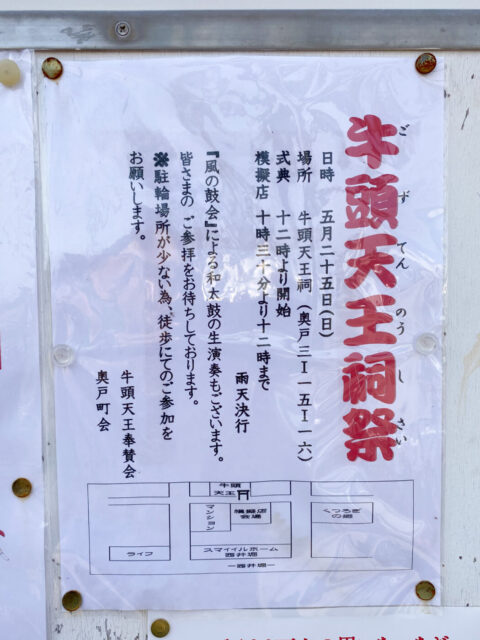 牛頭天王祠祭
ご ず てん のう し さい
日時 五月二十五日(日)
場所 牛頭天王祠(奥戸三ー一五ー一六)
式典 十二時より開始
模擬店 十時三十分より十二時まで
雨天決行
『風の鼓会』による和太鼓の生演奏もございます。
皆さまの ご参拝をお待ちしております。
※駐輪場所が少ない為、徒歩にてのご参加を
お願いします。
牛頭天王奉賛会
奥戸町会
牛頭
天王
マンション
模擬店
会場
くつろぎ
の郷
ライフ
スマイルホーム
西井堀
ー西井堀ー